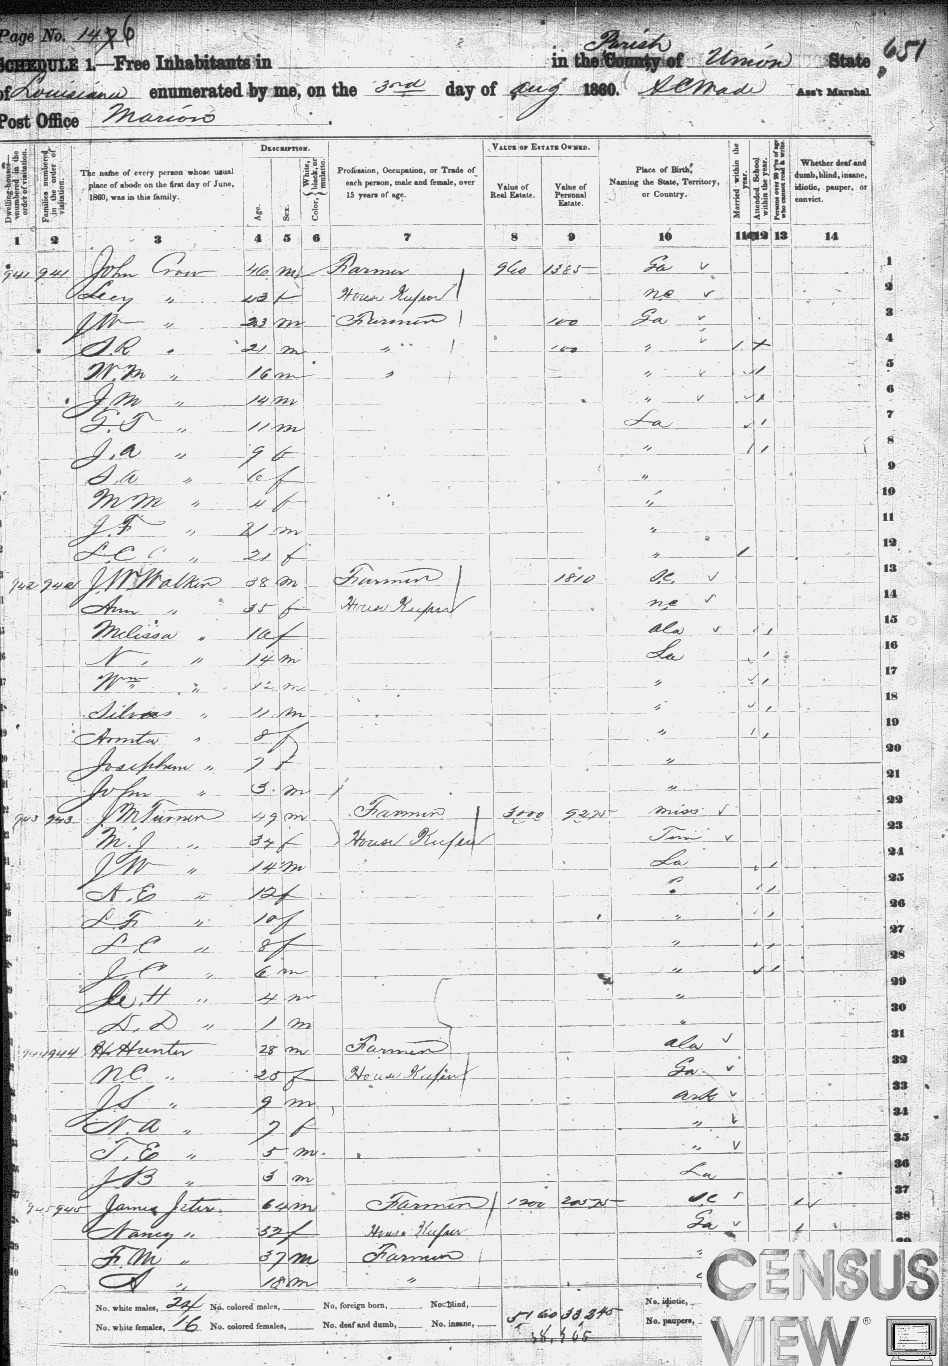 Page No. 146
651
SCHEDULE 1.—Free Inhabitants in in the County of Parish Union State
of Louisiana enumerated by me, on the 3rd day of Aug 1860. Ass't Marshal
Post Office Marion
DESCRIPTION. VALUE OF ESTATE OWNED.
Dwelling-houses—numbered in the order of visitation. Families numbered in the order of visitation. The name of every person whose usual place of abode on the first day of June, 1860, was in this family. Age. Sex. Color, White, black, or mulatto. Profession, Occupation, or Trade of each person, male and female, over 15 years of age. Value of Real Estate. Value of Personal Estate. Place of Birth, Naming the State, Territory, or Country. Married within the year. Attended School within the year. Persons over 20 y'rs of age who cannot read & write. Whether deaf and dumb, blind, insane, idiotic, pauper, or convict.
1 2 3 4 5 6 7 8 9 10 11 12 13 14
941 941 John Crow 46 m Farmer 960 1385 Ga 1
" 43 f House Keeper NC 2
J W " 23 m Farmer 100 Ga 3
S. R " 21 m " 100 " 4
W. M " 16 m " " 5
J M " 14 m " 6
G. T " 11 m La 7
J. A " 9 " 8
S. A " 6 f " 9
M M " 4 f " 10
J. F " 21 m " 11
L. C " 21 f " 12
942 942 J. W. Walker 38 m Farmer 1810 13
Ann " 35 f House Keeper NC 14
Melissa " 16 f Ala 15
N. " 14 m La 16
Wm " 12 m " 17
" 11 m " 18
" 8 f " 19
Josephine " 7 f " 20
John " 3 m " 21
943 943 J. M Turner 49 m Farmer 3000 9225 Miss 22
M. J " 34 f House Keeper Tenn 23
J W " 14 m La 24
A. E " 12 f 25
L. F. " 10 f " 26
L. C " 8 f " 27
J. C " 6 m " 28
H " 4 m " 29
D. D " 1 m " 30
944 944 H. Hunter 28 m Farmer Ala 31
N. C " 25 f House Keeper Ga 32
J. S " 9 m Ark 33
N. A " 7 f " 34
T. E " 5 m " 35
J B " 3 m La 36
945 945 James Jeter 64 m Farmer 1200 20525 SC 37
Nancy " 32 f House Keeper Ga 38
F. M " 37 m Farmer " 39
" 18 m " 40
No. white males, 24 No. colored males, No. foreign born, No. blind, No. idiotic,
No. white females, 16 No. colored females, No. deaf and dumb, No. insane, No. paupers,
5160 33,245
CENSUS
VIEW®